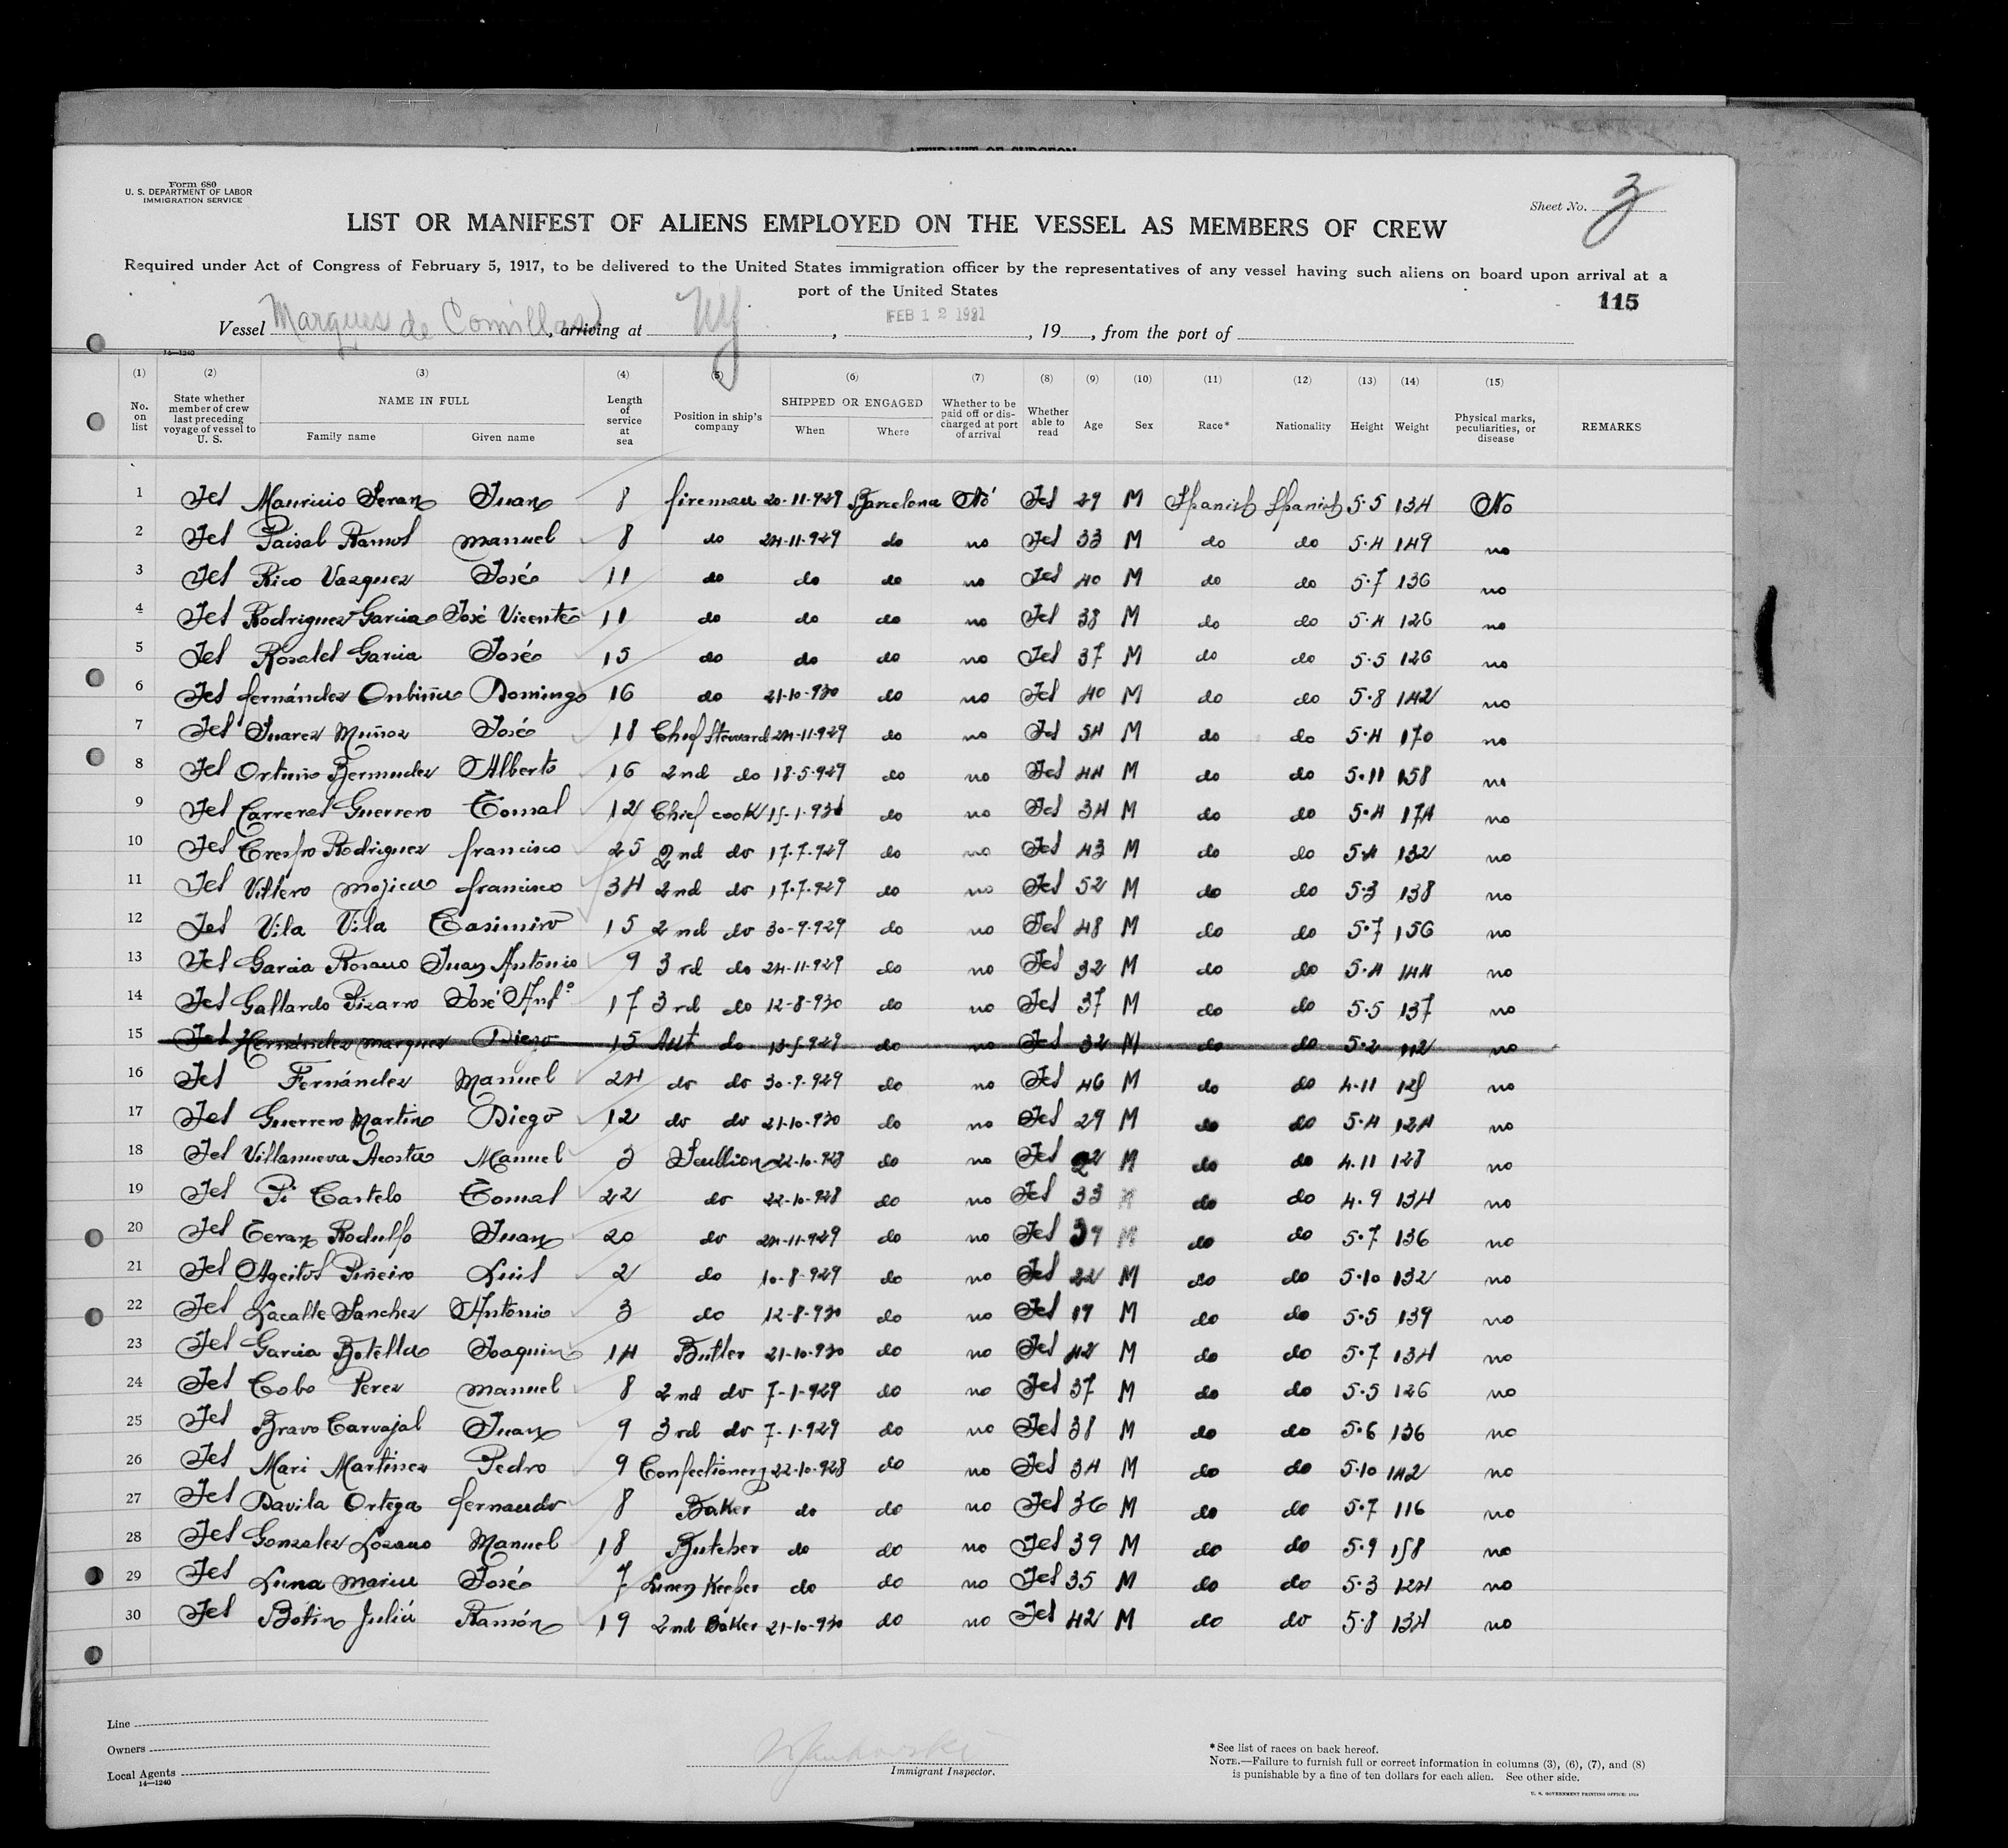 AFFIDAVIT OF SURGEON
Form 680
U. S. DEPARTMENT OF LABOR
IMMIGRATION SERVICE
Sheet No. 3
LIST OR MANIFEST OF ALIENS EMPLOYED ON THE VESSEL AS MEMBERS OF CREW
Required under Act of Congress of February 5, 1917, to be delivered to the United States immigration officer by the representatives of any vessel having such aliens on board upon arrival at a
port of the United States
115
Vessel Marques de Comillas, arriving at NY, FEB 12 1931, 19, from the port of
14—1240
(1) (2) (3) (4) (5) (6) (7) (8) (9) (10) (11) (12) (13) (14) (15)
No. on list State whether member of crew last preceding voyage of vessel to U. S. NAME IN FULL Family name Given name Length of service at sea Position in ship's company SHIPPED OR ENGAGED When Where Whether to be paid off or discharged at port of arrival Whether able to read Age Sex Race* Nationality Height Weight Physical marks, peculiarities, or disease REMARKS
1 Yes Mauricio Teran Juan 8 fireman 20-11-929 Barcelona No Yes 29 M Spanish Spanish 5.5 134 No
2 Yes Paisal Ramos manuel 8 do 24-11-929 do no Yes 33 M do do 5.4 149 no
3 Yes Rico Vazquez José 11 do do do no Yes 40 M do do 5.7 136 no
4 Yes Rodriguez Garcia José Vicente 11 do do do no Yes 38 M do do 5.4 126 no
5 Yes Rosales Garcia José 15 do do do no Yes 37 M do do 5.5 126 no
6 Yes fernández Domingo 16 do 21-10-930 do no Yes 40 M do do 5.8 142 no
7 Yes Suarez Muñoz José 18 Chief Steward 24-11-929 do no Yes 54 M do do 5.4 170 no
8 Yes Ortuño Bermudez Alberto 16 2nd do 18-5-929 do no Yes 44 M do do 5.11 158 no
9 Yes Carreras Guerrero Tomas 12 Chief cook 15-1-931 do no Yes 34 M do do 5.4 174 no
10 Yes Crespo Rodriguez francisco 25 2nd do 17-7-929 do no Yes 43 M do do 5.4 132 no
11 Yes Villero mojica francisco 34 2nd do 17-7-929 do no Yes 52 M do do 5.3 138 no
12 Yes Vila Vila Casimiro 15 2nd do 30-9-929 do no Yes 48 M do do 5.7 156 no
13 Yes Garcia Rosano Juan Antonio 9 3rd do 24-11-929 do no Yes 32 M do do 5.4 144 no
14 Yes Gallardo Pizarro José Antº 17 3rd do 12-8-930 do no Yes 37 M do do 5.5 137 no
15 Yes Hernández marquez Diego 15 Asst do 13-5-929 do no Yes 32 M do do 5.2 112 no
16 Yes Fernández Manuel 24 do do 30-9-929 do no Yes 46 M do do 4.11 no
17 Yes Guerrero Martin Diego 12 do do 21-10-930 do no Yes 29 M do do 5.4 124 no
18 Yes Villanueva Acosta Manuel 3 Scullion 22-10-928 do no Yes 22 M do do 4.11 128 no
19 Yes Pi Castelo Tomas 22 do 22-10-928 do no Yes 33 M do do 4.9 134 no
20 Yes Teran Rodulfo Juan 20 do 24-11-929 do no Yes 39 M do do 5.7 136 no
21 Yes Ageitos Piñeiro Luis 2 do 10-8-929 do no Yes 22 M do do 5.10 132 no
22 Yes Lacalle Sanchez Antonio 3 do 12-8-930 do no Yes 19 M do do 5.5 139 no
23 Yes Garcia Botella Joaquin 14 Butler 21-10-930 do no Yes 42 M do do 5.7 134 no
24 Yes Cobo Perez manuel 8 2nd do 7-1-929 do no Yes 37 M do do 5.5 126 no
25 Yes Bravo Carvajal Juan 9 3rd do 7-1-929 do no Yes 38 M do do 5.6 136 no
26 Yes Mari Martinez Pedro 9 Confectionery 22-10-928 do no Yes 34 M do do 5.10 142 no
27 Yes Davila Ortega fernando 8 Baker do do no Yes 36 M do do 5.7 116 no
28 Yes Gonzalez Lozano Manuel 18 Butcher do do no Yes 39 M do do 5.9 158 no
29 Yes Luna Maria José 7 Linen Keeper do do no Yes 35 M do do 5.3 124 no
30 Yes Botin Juliá Ramón 19 2nd Baker 21-10-930 do no Yes 42 M do do 5.8 134 no
Line
Owners
Local Agents
14—1240
Immigrant Inspector.
*See list of races on back hereof.
NOTE.—Failure to furnish full or correct information in columns (3), (6), (7), and (8)
is punishable by a fine of ten dollars for each alien. See other side.
U. S. GOVERNMENT PRINTING OFFICE: